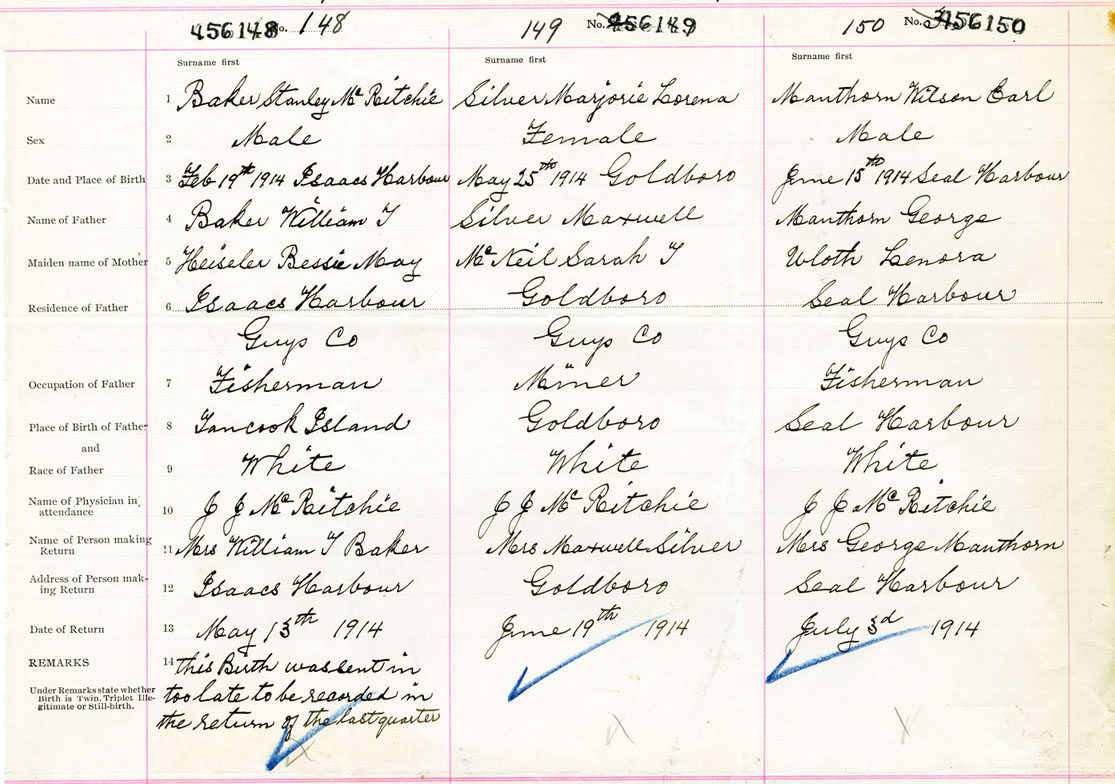 456148 No. 148 149 No. 456149 150 No. 456150
Surname first Surname first Surname first
Name 1 Baker Stanley Mc Ritchie Silver Marjorie Lorena Manthorn Wilson Earl
Sex 2 Male Female Male
Date and Place of Birth 3 Feb 19th 1914 Isaacs Harbour May 25th 1914 Goldboro June 15th 1914 Seal Harbour
Name of Father 4 Baker William T Silver Maxwell Manthorn George
Maiden name of Mother 5 Heisler Bessie May Mc Neil Sarah T Wloth Lenora
Residence of Father 6 Isaacs Harbour Goldboro Seal Harbour
Guys Co Guys Co Guys Co
Occupation of Father 7 Fisherman Miner Fisherman
Place of Birth of Father 8 Tancook Island Goldboro Seal Harbour
and
Race of Father 9 White White White
Name of Physician in
attendance 10 J J Mc Ritchie J J Mc Ritchie J J Mc Ritchie
Name of Person making
Return 11 Mrs William T Baker Mrs Maxwell Silver Mrs George Manthorn
Address of Person mak-
ing Return 12 Isaacs Harbour Goldboro Seal Harbour
Date of Return 13 May 13th 1914 June 19th 1914 July 3d 1914
REMARKS 14 this Birth was sent in
Under Remarks state whether
Birth is Twin, Triplet Ille-
gitimate or Still-birth.
too late to be recorded in
the return of the last quarter